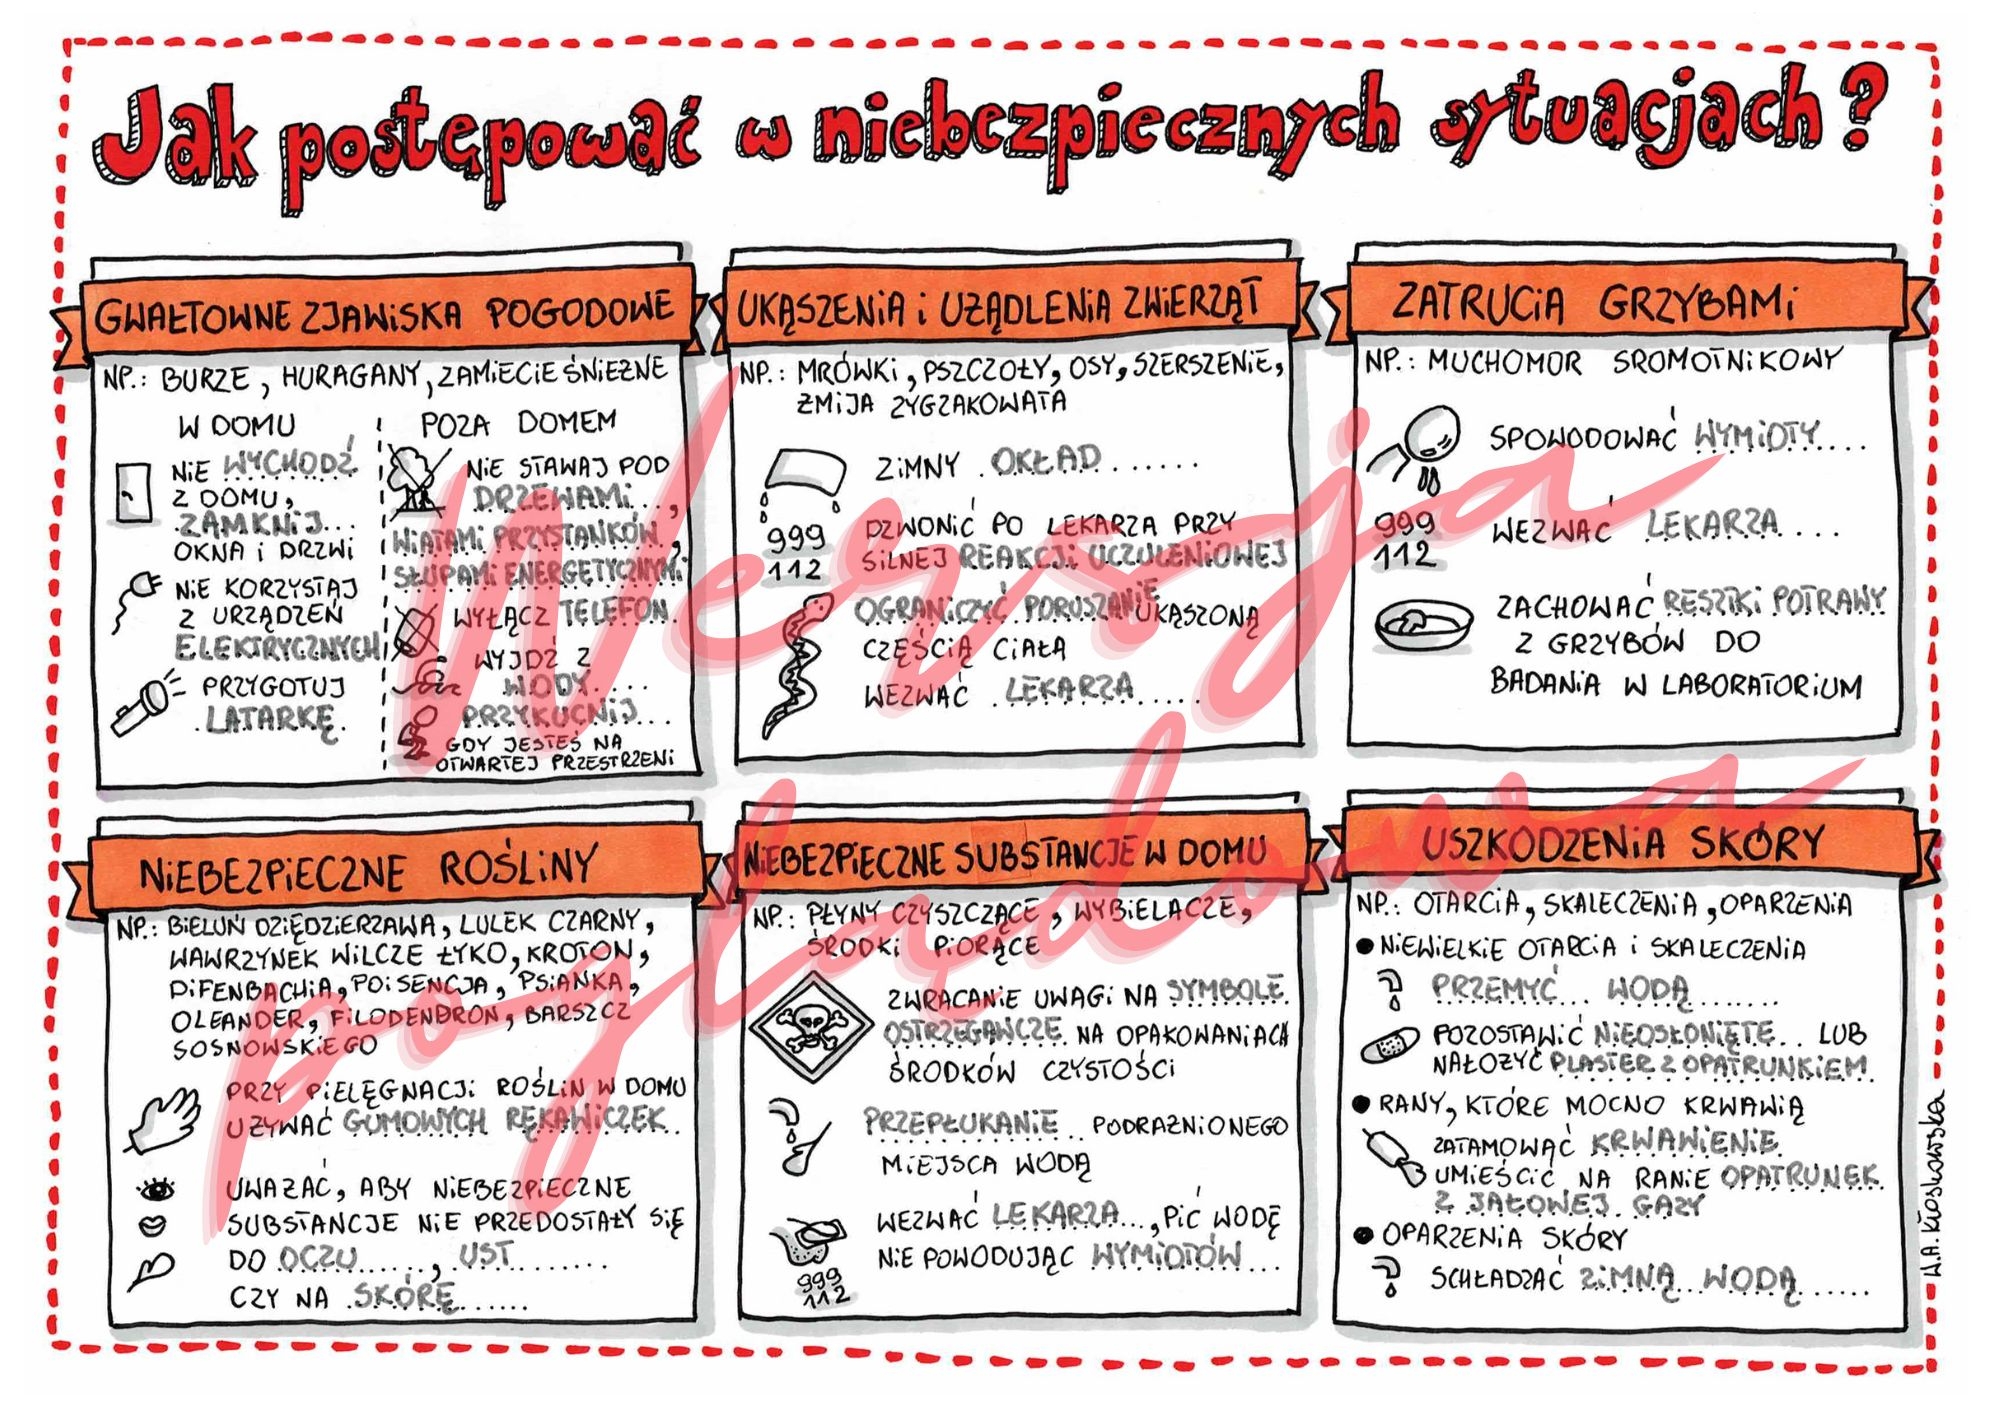 Jak postępować w niebezpiecznych sytuacjach?
GWAŁTOWNE ZJAWISKA POGODOWE
NP.: BURZE, HURAGANY, ZAMIECIE ŚNIEŻNE
W DOMU
NIE WYCHODŹ
Z DOMU,
ZAMKNIJ...
OKNA i DRZWI
NIE KORZYSTAJ
Z URZĄDZEŃ
ELEKTRYCZNYCH
PRZYGOTUJ
.LATARKĘ.
POZA DOMEM
NIE STAWAJ POD
DRZEWAMI...,
WIATAMI PRZYSTANKÓW,
SŁUPAMI ENERGETYCZNYMI
WYŁĄCZ TELEFON.
WYJDŹ Z
WODY.....
PRZYKUCNIJ...
GDY JESTEŚ NA
OTWARTEJ PRZESTRZENI
UKĄSZENIA i UŻĄDLENIA ZWIERZĄT
NP.: MRÓWKI, PSZCZOŁY, OSY, SZERSZENIE,
ŻMIJA ZYGZAKOWATA
ZIMNY .OKŁAD.......
999
112
DZWONIĆ PO LEKARZA PRZY
SILNEJ REAKCJI UCZULENIOWEJ
OGRANICZYĆ PORUSZANIE UKĄSZONĄ
CZĘŚCIĄ CIAŁA
WEZWAĆ .LEKARZA......
ZATRUCIA GRZYBAMI
NP.: MUCHOMOR SROMOTNIKOWY
SPOWODOWAĆ WYMIOTY....
999
112
WEZWAĆ LEKARZA....
ZACHOWAĆ RESZTKI POTRAWY
Z GRZYBÓW DO
BADANIA W LABORATORIUM
NIEBEZPIECZNE ROŚLINY
NP.: BIELUŃ DZIĘDZIERZAWA, LULEK CZARNY,
WAWRZYNEK WILCZE ŁYKO, KROTON,
DIFENBACHIA, POISENCJA, PSIANKA,
OLEANDER, FILODENDRON, BARSZCZ
SOSNOWSKIEGO
PRZY PIELĘGNACJI ROŚLIN W DOMU
UŻYWAĆ GUMOWYCH RĘKAWICZEK..
UWAŻAĆ, ABY NIEBEZPIECZNE
SUBSTANCJE NIE PRZEDOSTAŁY SIĘ
DO OCZU......, UST........
CZY NA .SKÓRĘ......
NIEBEZPIECZNE SUBSTANCJE W DOMU
NP.: PŁYNY CZYSZCZĄCE, WYBIELACZE,
ŚRODKI PIORĄCE
ZWRACANIE UWAGI NA SYMBOLE
OSTRZEGAWCZE. NA OPAKOWANIACH
ŚRODKÓW CZYSTOŚCI
PRZEPŁUKANIE .. PODRAŻNIONEGO
MIEJSCA WODĄ
WEZWAĆ LEKARZA..., PIĆ WODĘ
NIE POWODUJĄC WYMIOTÓW...
999
112
USZKODZENIA SKÓRY
NP.: OTARCIA, SKALECZENIA, OPARZENIA
● NIEWIELKIE OTARCIA i SKALECZENIA
PRZEMYĆ... WODĄ........
POZOSTAWIĆ NIEOSŁONIĘTE... LUB
NAŁOŻYĆ PLASTER Z OPATRUNKIEM
● RANY, KTÓRE MOCNO KRWAWIĄ
ZATAMOWAĆ KRWAWIENIE.
UMIEŚCIĆ NA RANIE OPATRUNEK
Z JAŁOWEJ GAZY
● OPARZENIA SKÓRY
SCHŁADZAĆ ZIMNĄ...WODĄ......
W.A. Kłoskowska
Wersja
poglądowa